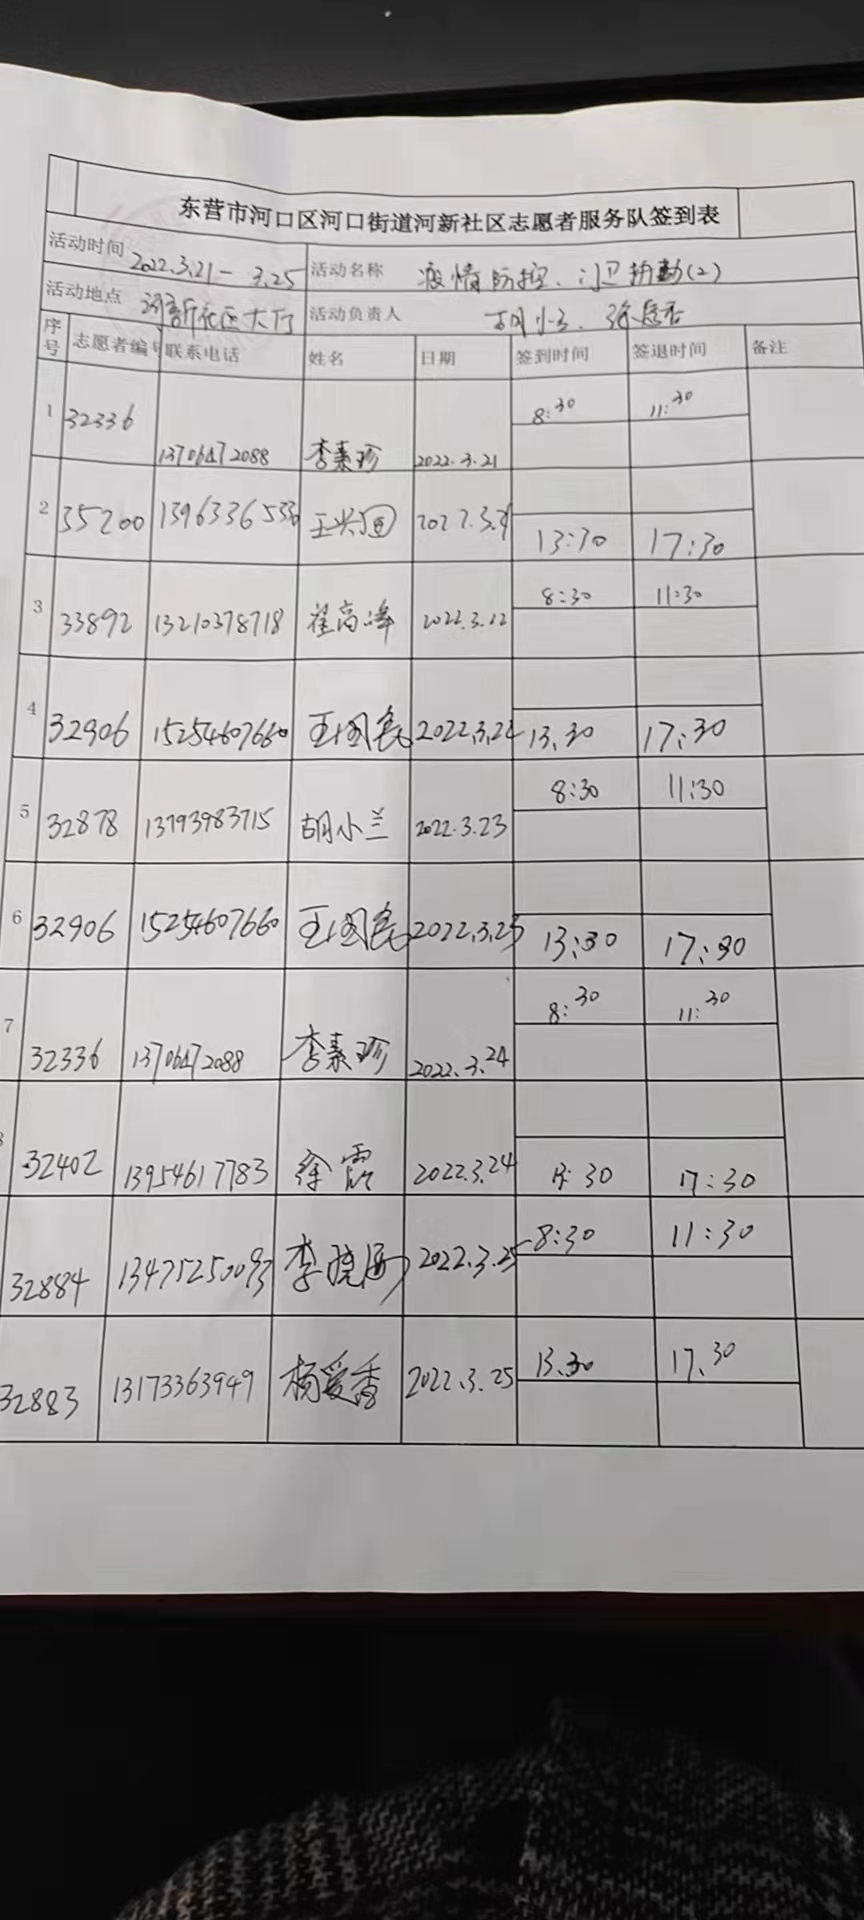 东营市河口区河口街道河新社区志愿者服务队签到表
活动时间 2022.3.21-3.25 活动名称 疫情防控、门卫执勤(2)
活动地点 河新社区大厅 活动负责人 胡小兰、
序号 志愿者编号 联系电话 姓名 日期 签到时间 签退时间 备注
1 32336 13706472088 李素珍 2022.3.21 8:30 11:30
2 35200 13963365330 王兴国 13:30 17:30
3 33892 13210378718 翟高峰 8:30 11:30
4 32906 15254607660 2022.3.22 13.30 17:30
5 32878 13793983715 胡小兰 2022.3.23 8:30 11:30
6 32906 15254607660 2022.3.23 13:30 17:30
7 32336 13706472088 李素珍 2022.3.24 8:30 11:30
32402 13954617783 徐霞 2022.3.24 13:30 17:30
32884 13475250093 李晓海 2022.3.25 8:30 11:30
32883 13173363949 杨爱香 2022.3.25 13.30 17.30